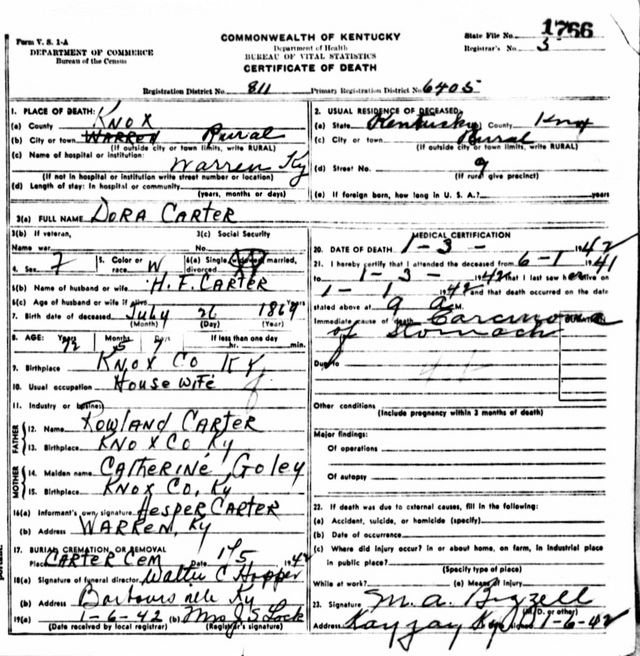 Form V. S. 1-A
DEPARTMENT OF COMMERCE
Bureau of the Census
COMMONWEALTH OF KENTUCKY
Department of Health
BUREAU OF VITAL STATISTICS
CERTIFICATE OF DEATH
State File No. 1766
Registrar's No. 3
Registration District No. 811 Primary Registration District No. 6405
1. PLACE OF DEATH:
(a) County KNOX
(b) City or town WARREN Rural
(If outside city or town limits, write RURAL)
(c) Name of hospital or institution:
Warren Ky
(If not in hospital or institution write street number or location)
(d) Length of stay: In hospital or community
(years, months or days)
2. USUAL RESIDENCE OF DECEASED:
(a) State Kentucky (b) County Knox
(c) City or town Rural
(If outside city or town limits, write RURAL)
(d) Street No. 9
(If rural give precinct)
(e) If foreign born, how long in U. S. A.? years
3(a) FULL NAME DORA CARTER
3(b) If veteran, 3(c) Social Security
Name war No.
4. Sex 7 5. Color or race W 6(a) Single, widowed, married, divorced
6(b) Name of husband or wife H. F. CARTER
6(c) Age of husband or wife if alive Years
7. Birth date of deceased July 26 1869
(Month) (Day) (Year)
8. AGE: Years Months Days If less than one day
72 5 7 hr. min.
9. Birthplace KNOX CO KY.
10. Usual occupation House wife
11. Industry or business
FATHER
12. Name ROWLAND CARTER
13. Birthplace KNOX CO. Ky
MOTHER
14. Maiden name CATHERINE GOLEY
15. Birthplace KNOX CO, Ky
16(a) Informant's own signature HESPER CARTER
(b) Address WARREN, Ky
17. BURIAL CREMATION OR REMOVAL
Place CARTER CEM Date 1/5 1942
18(a) Signature of funeral director Walter C Hopper
(b) Address Barbourville Ky
19(a) 1-6-42 (b) Mrs J S Lock
(Date received by local registrar) (Registrar's signature)
MEDICAL CERTIFICATION
20. DATE OF DEATH 1-3- 1942
21. I hereby certify that I attended the deceased from 6-1 1941
to 1-3- 1942 that I last saw her alive on
1-1 1942 and that death occurred on the date
stated above at 9 a M.
Immediate cause of death Carcinoma DURATION
of Stomach
Due to
Other conditions
(Include pregnancy within 3 months of death)
Major findings:
Of operations
Of autopsy
22. If death was due to external causes, fill in the following:
(a) Accident, suicide, or homicide (specify)
(b) Date of occurrence
(c) Where did injury occur? in or about home, on farm, in industrial place
in public place?
(Specify type of place)
While at work? (e) Means of injury
23. Signature M. A. Bizzell
(M. D. or other)
Address Kayjay Ky 1-6-42